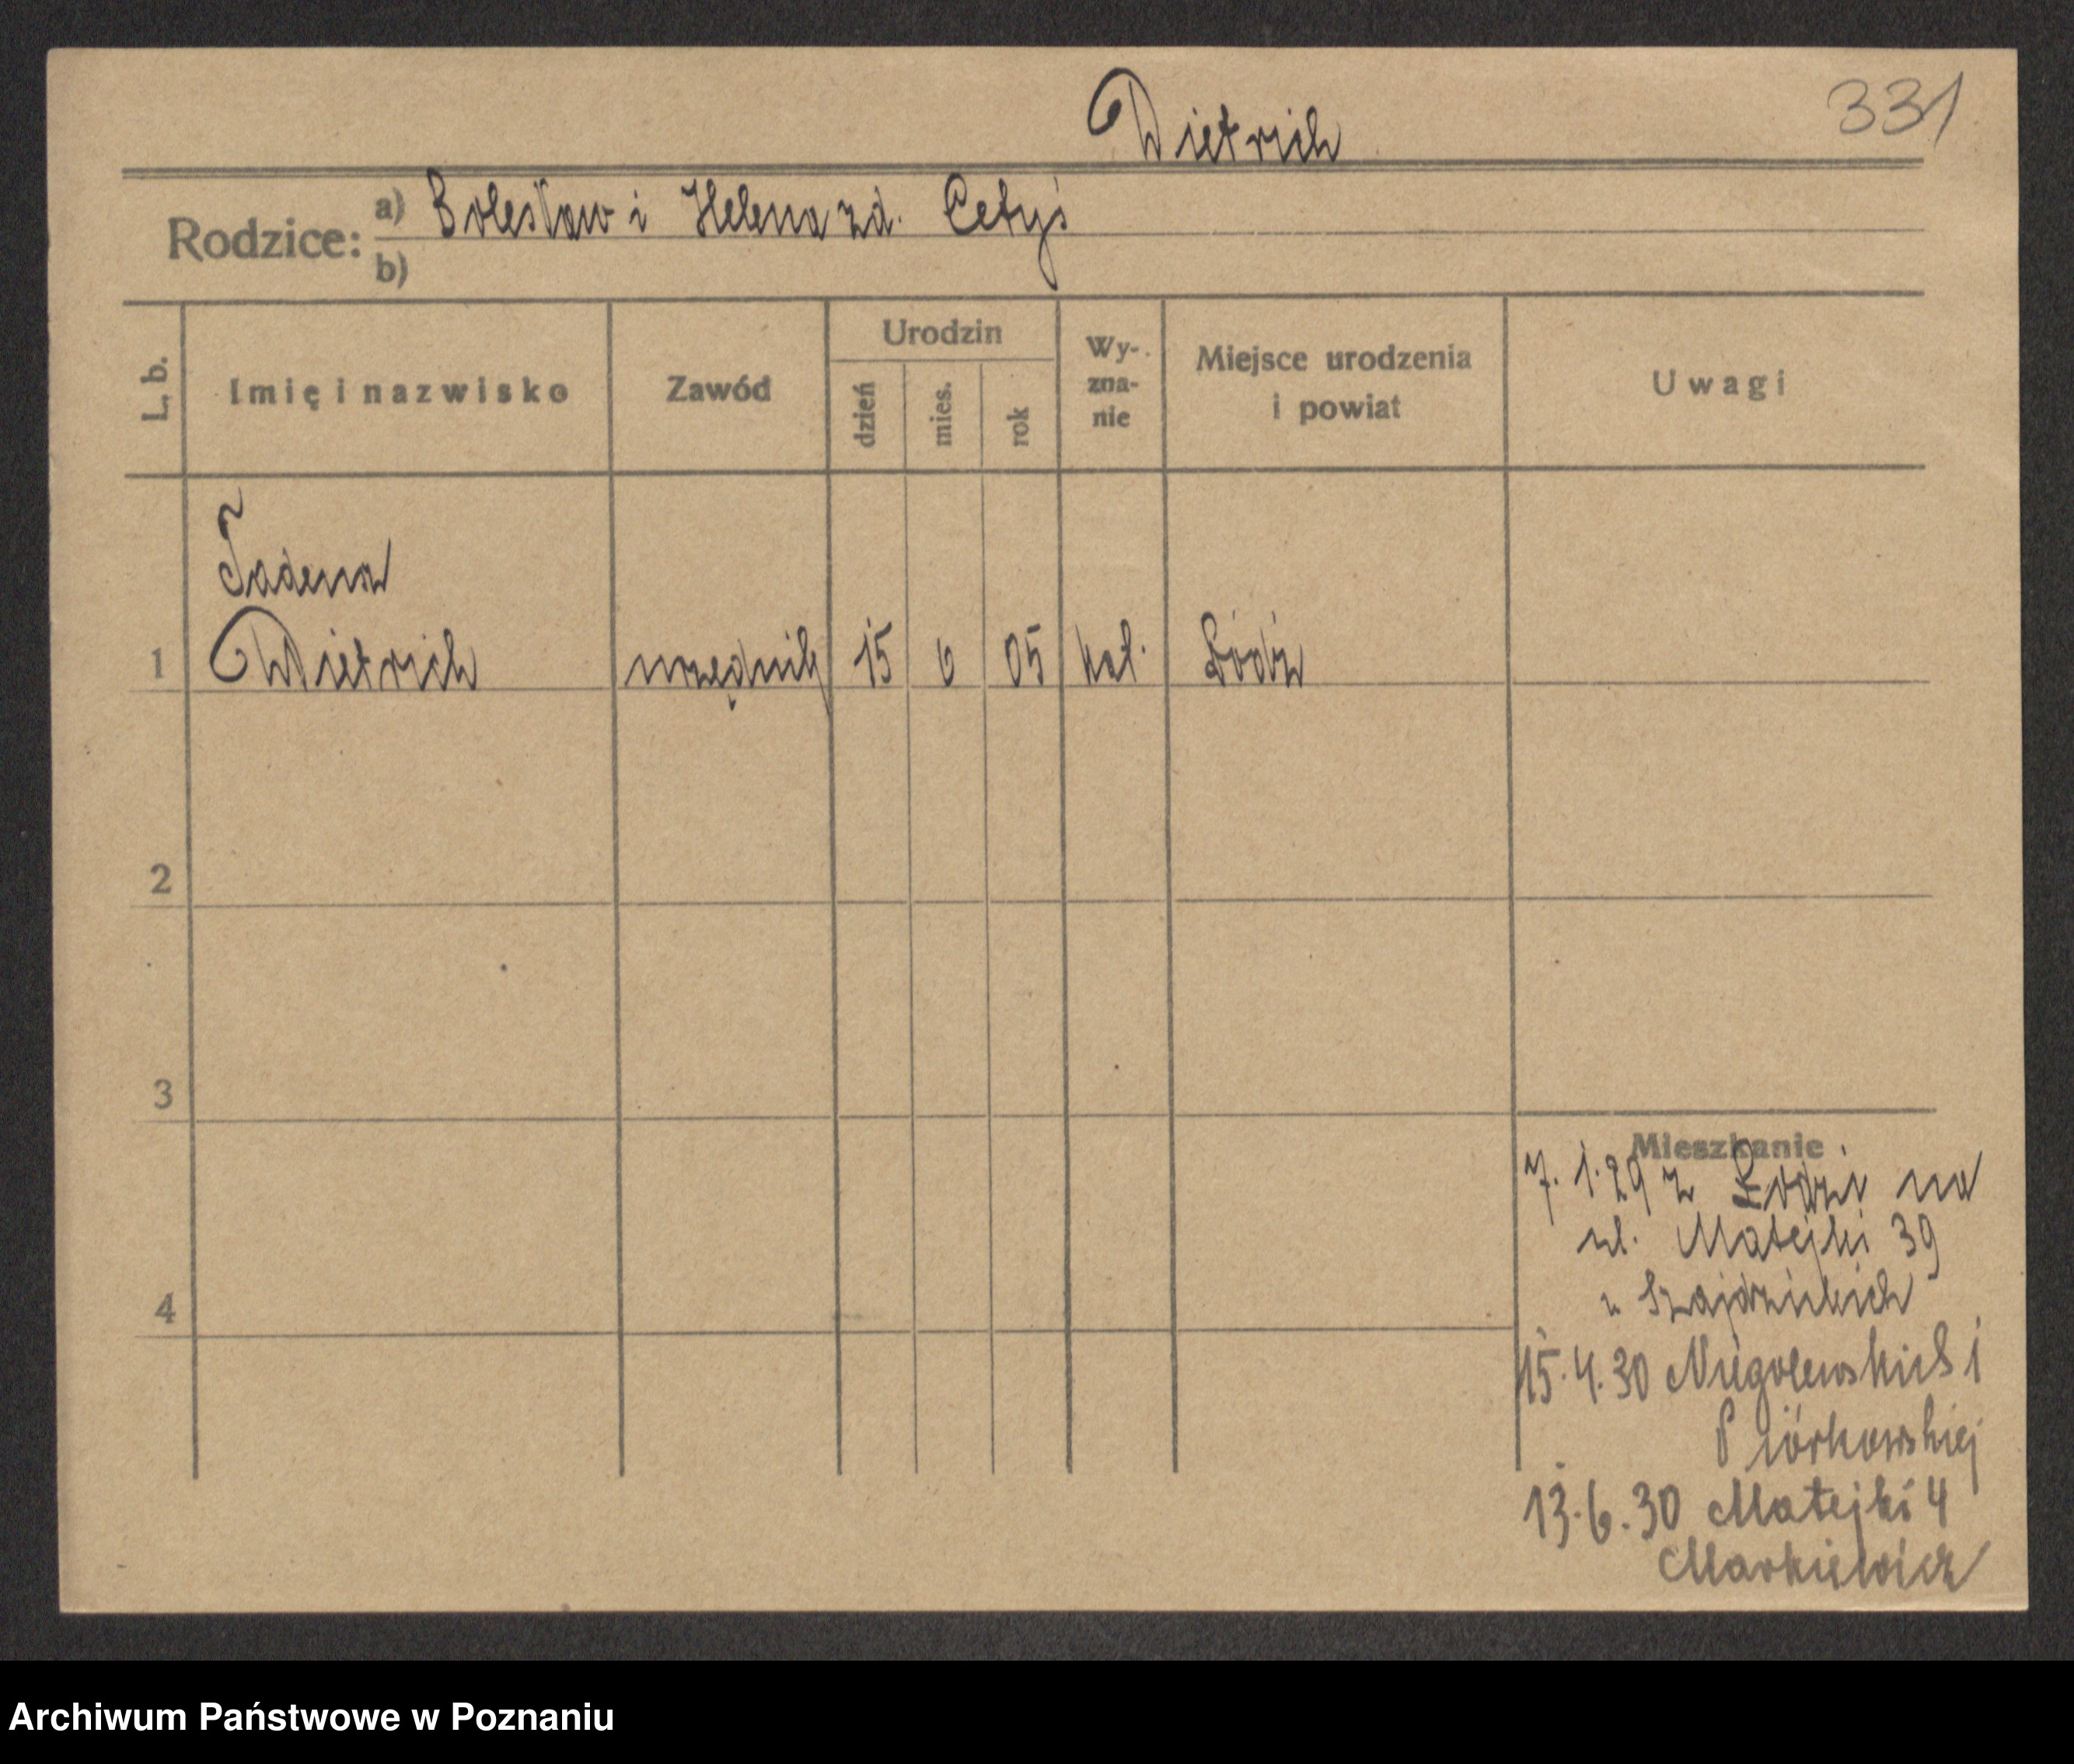 331
Dietrich
Rodzice: a) Bolesław i Helena zd. Cetyś
b)
L. b. Imię i nazwisko Zawód Urodzin dzień mies. rok Wy-zna-nie Miejsce urodzenia i powiat Uwagi
Tadeusz
1 Dietrich urzędnik 15 6 05 kat. Łódź
2
3
Mieszkanie
7.1.29 z Łodzi na
ul. Matejki 39
4 u
15.4.30 Niegolewskich 1
Piórkowskiej
13.6.30 Matejki 4
Markiewicz
Archiwum Państwowe w Poznaniu